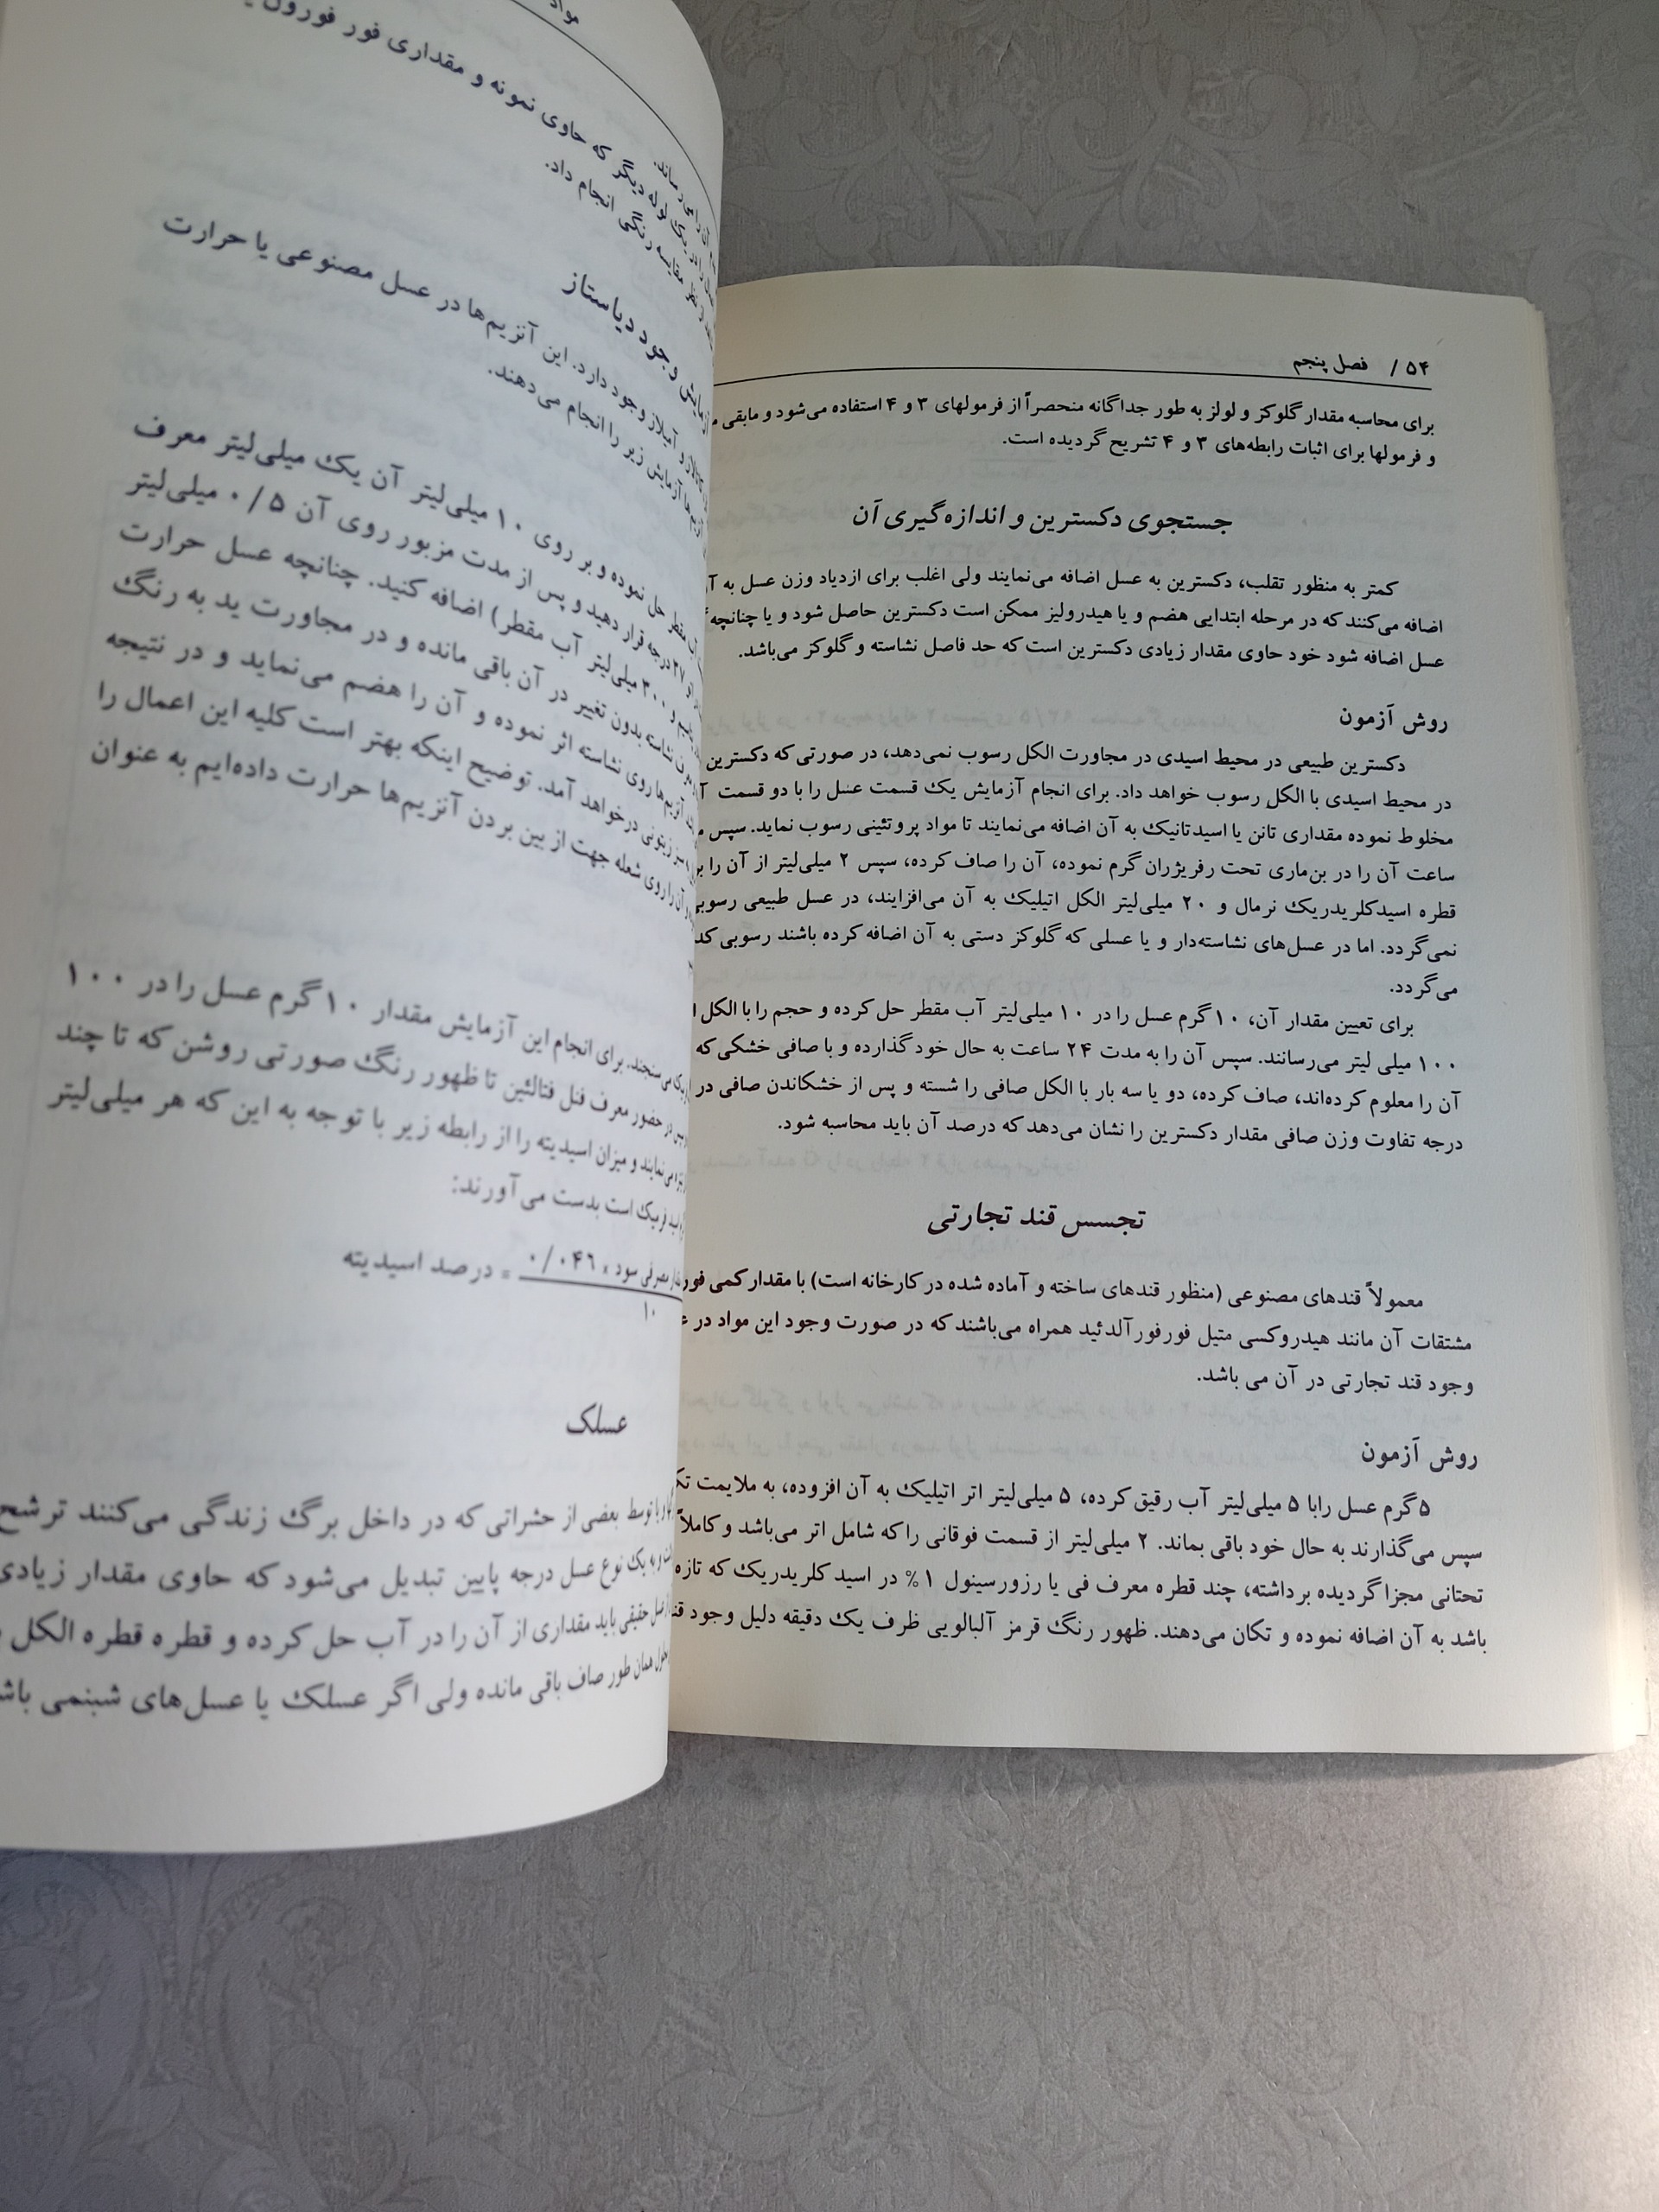 ۵۴ / فصل پنجم
برای محاسبه مقدار گلوکز و لولز به طور جداگانه منحصراً از فرمولهای ۳ و ۴ استفاده می‌شود و مابقی
و فرمولها برای اثبات رابطه‌های ۳ و ۴ تشریح گردیده است.
جستجوی دکسترین و اندازه‌گیری آن
کمتر به منظور تقلب، دکسترین به عسل اضافه می‌نمایند ولی اغلب برای ازدیاد وزن عسل به
اضافه می‌کنند که در مرحله ابتدایی هضم و یا هیدرولیز ممکن است دکسترین حاصل شود و یا چنانچه
عسل اضافه شود خود حاوی مقدار زیادی دکسترین است که حد فاصل نشاسته و گلوکز می‌باشد.
روش آزمون
دکسترین طبیعی در محیط اسیدی در مجاورت الکل رسوب نمی‌دهد، در صورتی که دکسترین
در محیط اسیدی با الکل رسوب خواهد داد. برای انجام آزمایش یک قسمت عسل را با دو قسمت
مخلوط نموده مقداری تانن یا اسیدتانیک به آن اضافه می‌نمایند تا مواد پروتئینی رسوب نماید. سپس
ساعت آن را در بن‌ماری تحت رفریژران گرم نموده، آن را صاف کرده، سپس ۲ میلی‌لیتر از آن را
قطره اسیدکلریدریک نرمال و ۲۰ میلی‌لیتر الکل اتیلیک به آن می‌افزایند، در عسل طبیعی
نمی‌گردد. اما در عسل‌های نشاسته‌دار و یا عسلی که گلوکز دستی به آن اضافه کرده باشند رسوبی
می‌گردد.
برای تعیین مقدار آن، ۱۰ گرم عسل را در ۱۰ میلی‌لیتر آب مقطر حل کرده و حجم را با الکل
۱۰۰ میلی لیتر می‌رسانند. سپس آن را به مدت ۲۴ ساعت به حال خود گذارده و با صافی خشکی که
آن را معلوم کرده‌اند، صاف کرده، دو یا سه بار با الکل صافی را شسته و پس از خشکاندن صافی در
درجه تفاوت وزن صافی مقدار دکسترین را نشان می‌دهد که درصد آن باید محاسبه شود.
تجسس قند تجارتی
معمولاً قندهای مصنوعی (منظور قندهای ساخته و آماده شده در کارخانه است) با مقدار کمی
مشتقات آن مانند هیدروکسی متیل فورفورآلدئید همراه می‌باشند که در صورت وجود این مواد در
وجود قند تجارتی در آن می باشد.
روش آزمون
۵ گرم عسل رابا ۵ میلی‌لیتر آب رقیق کرده، ۵ میلی‌لیتر اتر اتیلیک به آن افزوده، به ملایمت
سپس می‌گذارند به حال خود باقی بماند. ۲ میلی‌لیتر از قسمت فوقانی را که شامل اتر می‌باشد و کاملاً
تحتانی مجزا گردیده برداشته، چند قطره معرف فی یا رزورسینول ۱% در اسید کلریدریک که تازه
باشد به آن اضافه نموده و تکان می‌دهند. ظهور رنگ قرمز آلبالویی ظرف یک دقیقه دلیل وجود
مواد
دیگر که حاوی نمونه و مقداری فور فورول
مقایسه رنگی انجام داد.
وجود دیاستاز
آمیلاز وجود دارد. این آنزیم‌ها در عسل مصنوعی یا حرارت
آزمایش زیر را انجام می‌دهند.
مقطر حل نموده و بر روی ۱۰ میلی‌لیتر آن یک میلی‌لیتر معرف
درجه قرار دهید و پس از مدت مزبور روی آن ۰/۵ میلی‌لیتر
میلی‌لیتر آب مقطر) اضافه کنید. چنانچه عسل حرارت
نشاسته بدون تغییر در آن باقی مانده و در مجاورت ید به رنگ
آنزیم‌ها روی نشاسته اثر نموده و آن را هضم می‌نماید و در نتیجه
سبز زیتونی درخواهد آمد. توضیح اینکه بهتر است کلیه این اعمال را
آن را روی شعله جهت از بین بردن آنزیم‌ها حرارت داده‌ایم به عنوان
می‌سنجند. برای انجام این آزمایش مقدار ۱۰ گرم عسل را در ۱۰۰
در حضور معرف فنل فتالئین تا ظهور رنگ صورتی روشن که تا چند
می‌نمایند و میزان اسیدیته را از رابطه زیر با توجه به این که هر میلی‌لیتر
است بدست می‌آورند:
مصرفی سود × ۰/۰۴۶ = درصد اسیدیته
۱۰
عسلک
توسط بعضی از حشراتی که در داخل برگ زندگی می‌کنند ترشح
به یک نوع عسل درجه پایین تبدیل می‌شود که حاوی مقدار زیادی
حقیقی باید مقداری از آن را در آب حل کرده و قطره قطره الکل
همان طور صاف باقی مانده ولی اگر عسلک یا عسل‌های شبنمی